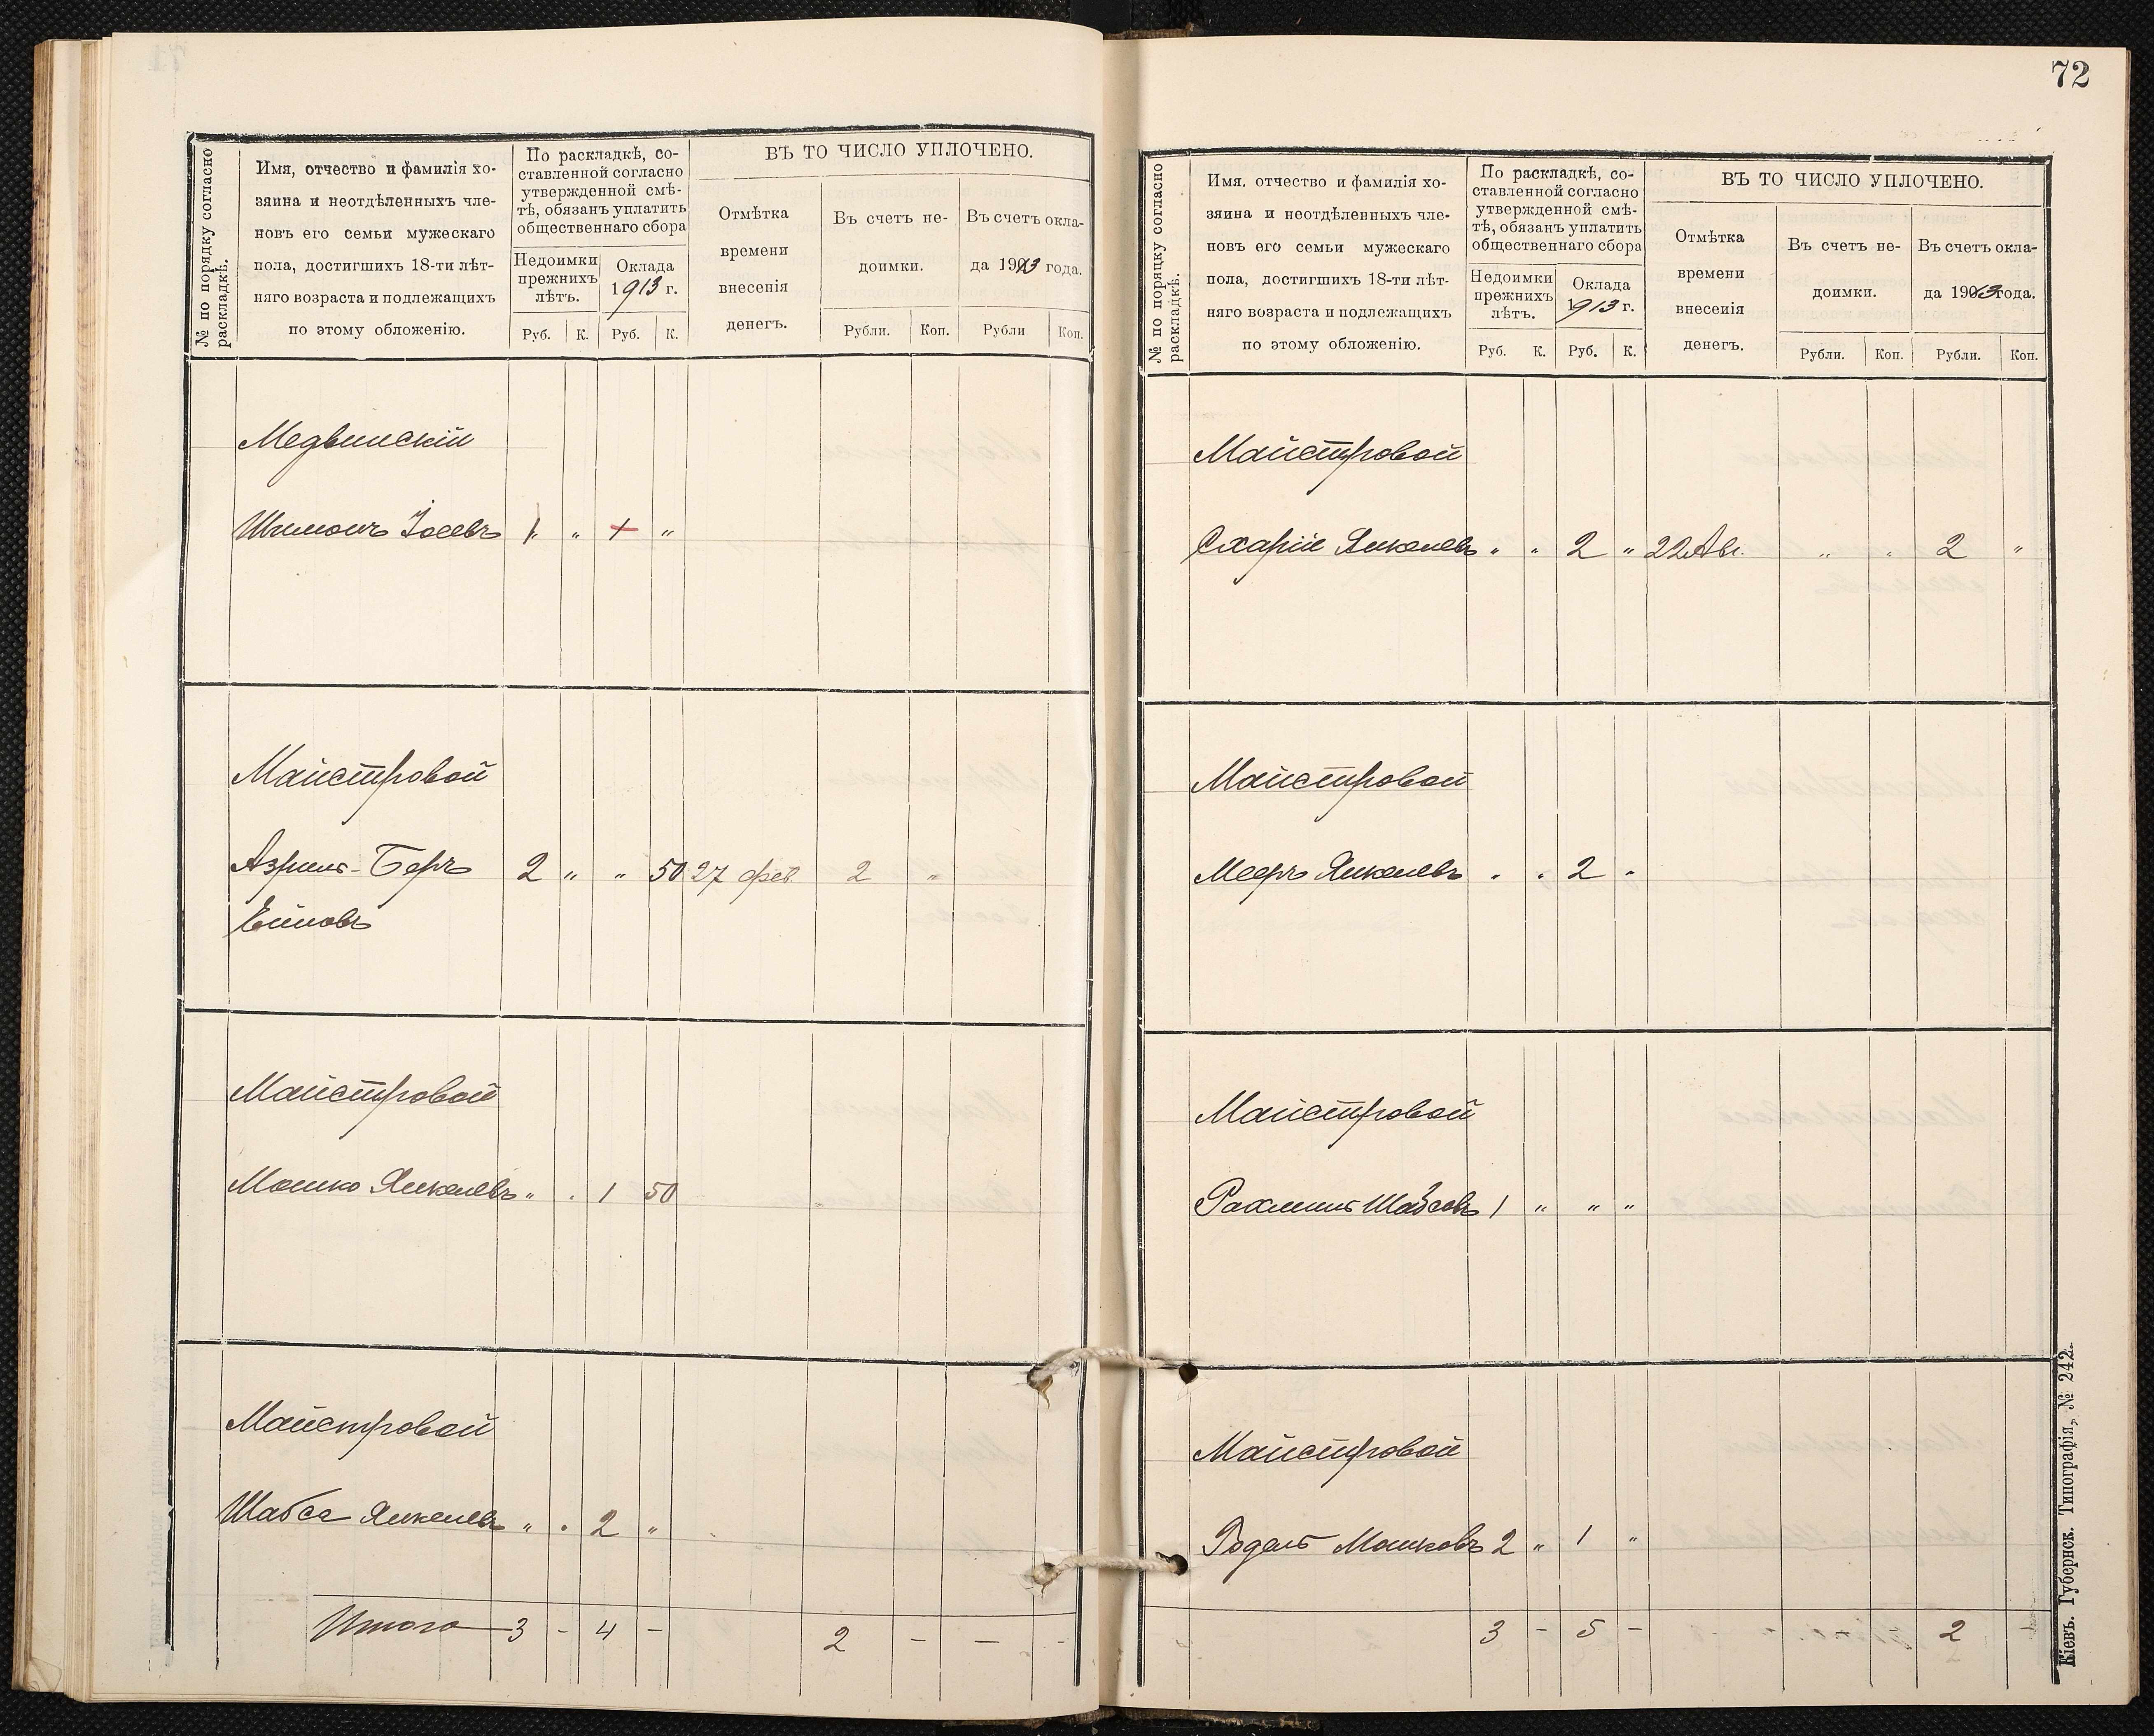 72
№ по порядку согласно
раскладкѣ.
Имя, отчество и фамилія хо-
зяина и неотдѣленныхъ чле-
новъ его семьи мужескаго
пола, достигшихъ 18-ти лѣт-
няго возраста и подлежащихъ
по этому обложенію.
По раскладкѣ, со-
ставленной согласно
утвержденной смѣ-
тѣ, обязанъ уплатить
общественнаго сбора
Недоимки
прежнихъ
лѣтъ.
Оклада
1913 г.
Руб. К. Руб. К.
ВЪ ТО ЧИСЛО УПЛОЧЕНО.
Отмѣтка
времени
внесенія
денегъ.
Въ счетъ не-
доимки.
Въ счетъ окла-
да 1913 года.
Рубли. Коп. Рубли Коп.
Медвинскій
Шимонъ Іосевъ 1 „ 1 „
Майстровой
Азриль-Беръ 2 „ „ 50 27 фев. 2 „
Ейновъ
Майстровой
Мошко Янкелевъ „ . 1 50
Майстровой
Шабса Янкелевъ „ . 2 „
Итого 3 - 4 - 2 — — -
№ по порядку согласно
раскладкѣ.
Имя. отчество и фамилія хо-
зяина и неотдѣленныхъ чле-
новъ его семьи мужескаго
пола, достигшихъ 18-ти лѣт-
няго возраста и подлежащихъ
по этому обложенію.
По раскладкѣ, со-
ставленной согласно
утвержденной смѣ-
тѣ, обязанъ уплатить
общественнаго сбора
Недоимки
прежнихъ
лѣтъ.
Оклада
1913 г.
Руб. К. Руб. К.
ВЪ ТО ЧИСЛО УПЛОЧЕНО.
Отмѣтка
времени
внесенія
денегъ.
Въ счетъ не-
доимки.
Въ счетъ окла-
да 1913 года.
Рубли. Коп. Рубли. Коп.
Майстровой
Схарія Янкелевъ „ „ 2 „ 22 Авг. „ „ 2 „
Майстровой
Мееръ Янкелевъ „ „ 2 „
Майстровой
Рахмиль Шабсовъ 1 „ „ „
Майстровой
Родаль Мошковъ 2 „ 1 „
3 - 5 - 2 -
Кіевъ. Губернск. Типографія, № 242.